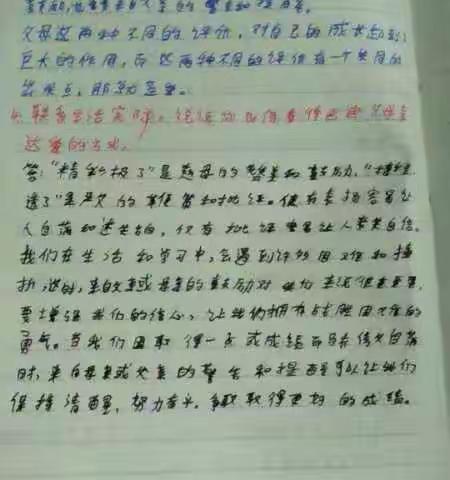 父母这两种不同的评价,对自己的成长起到
巨大的作用,而这两种不同的评价有一个共同的
出发点,那就是爱。
4.联系生活实际,说说你如何看待巴迪父母
这爱的方式。
答:"精彩极了"是慈母的赞美和鼓励,"糟糕
透了"是严父的和批评。表扬容易让
人自满和迷失自,仅有批评容易让人丧失自信。
我们在生活和学习中,会遇到许多困难和挫
折,这时,来自父亲或母亲的鼓励对我们来说很重要,
要增强我们的信心,让我们拥有战胜困难的
勇气。当我们因取得一点成绩而骄傲自满
时,来自母亲或父亲的警告和提醒可以让我们
保持清醒,努力奋斗。争取取得更好的成绩。